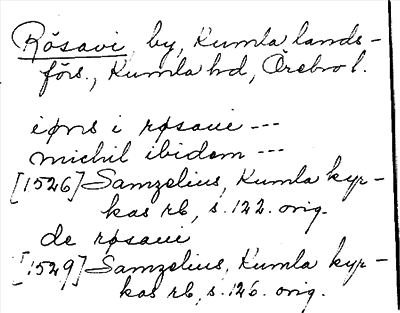 Rösavi, by, Kumla lands-
förs., Kumla hd, Örebro l.
iøns i røsaui ---
michil ibidem ---
[1526] Samzelius, Kumla kyr-
kas rb, s. 122. orig.
de røsaui
[1529] Samzelius, Kumla kyr-
kas rb, s. 126. orig.